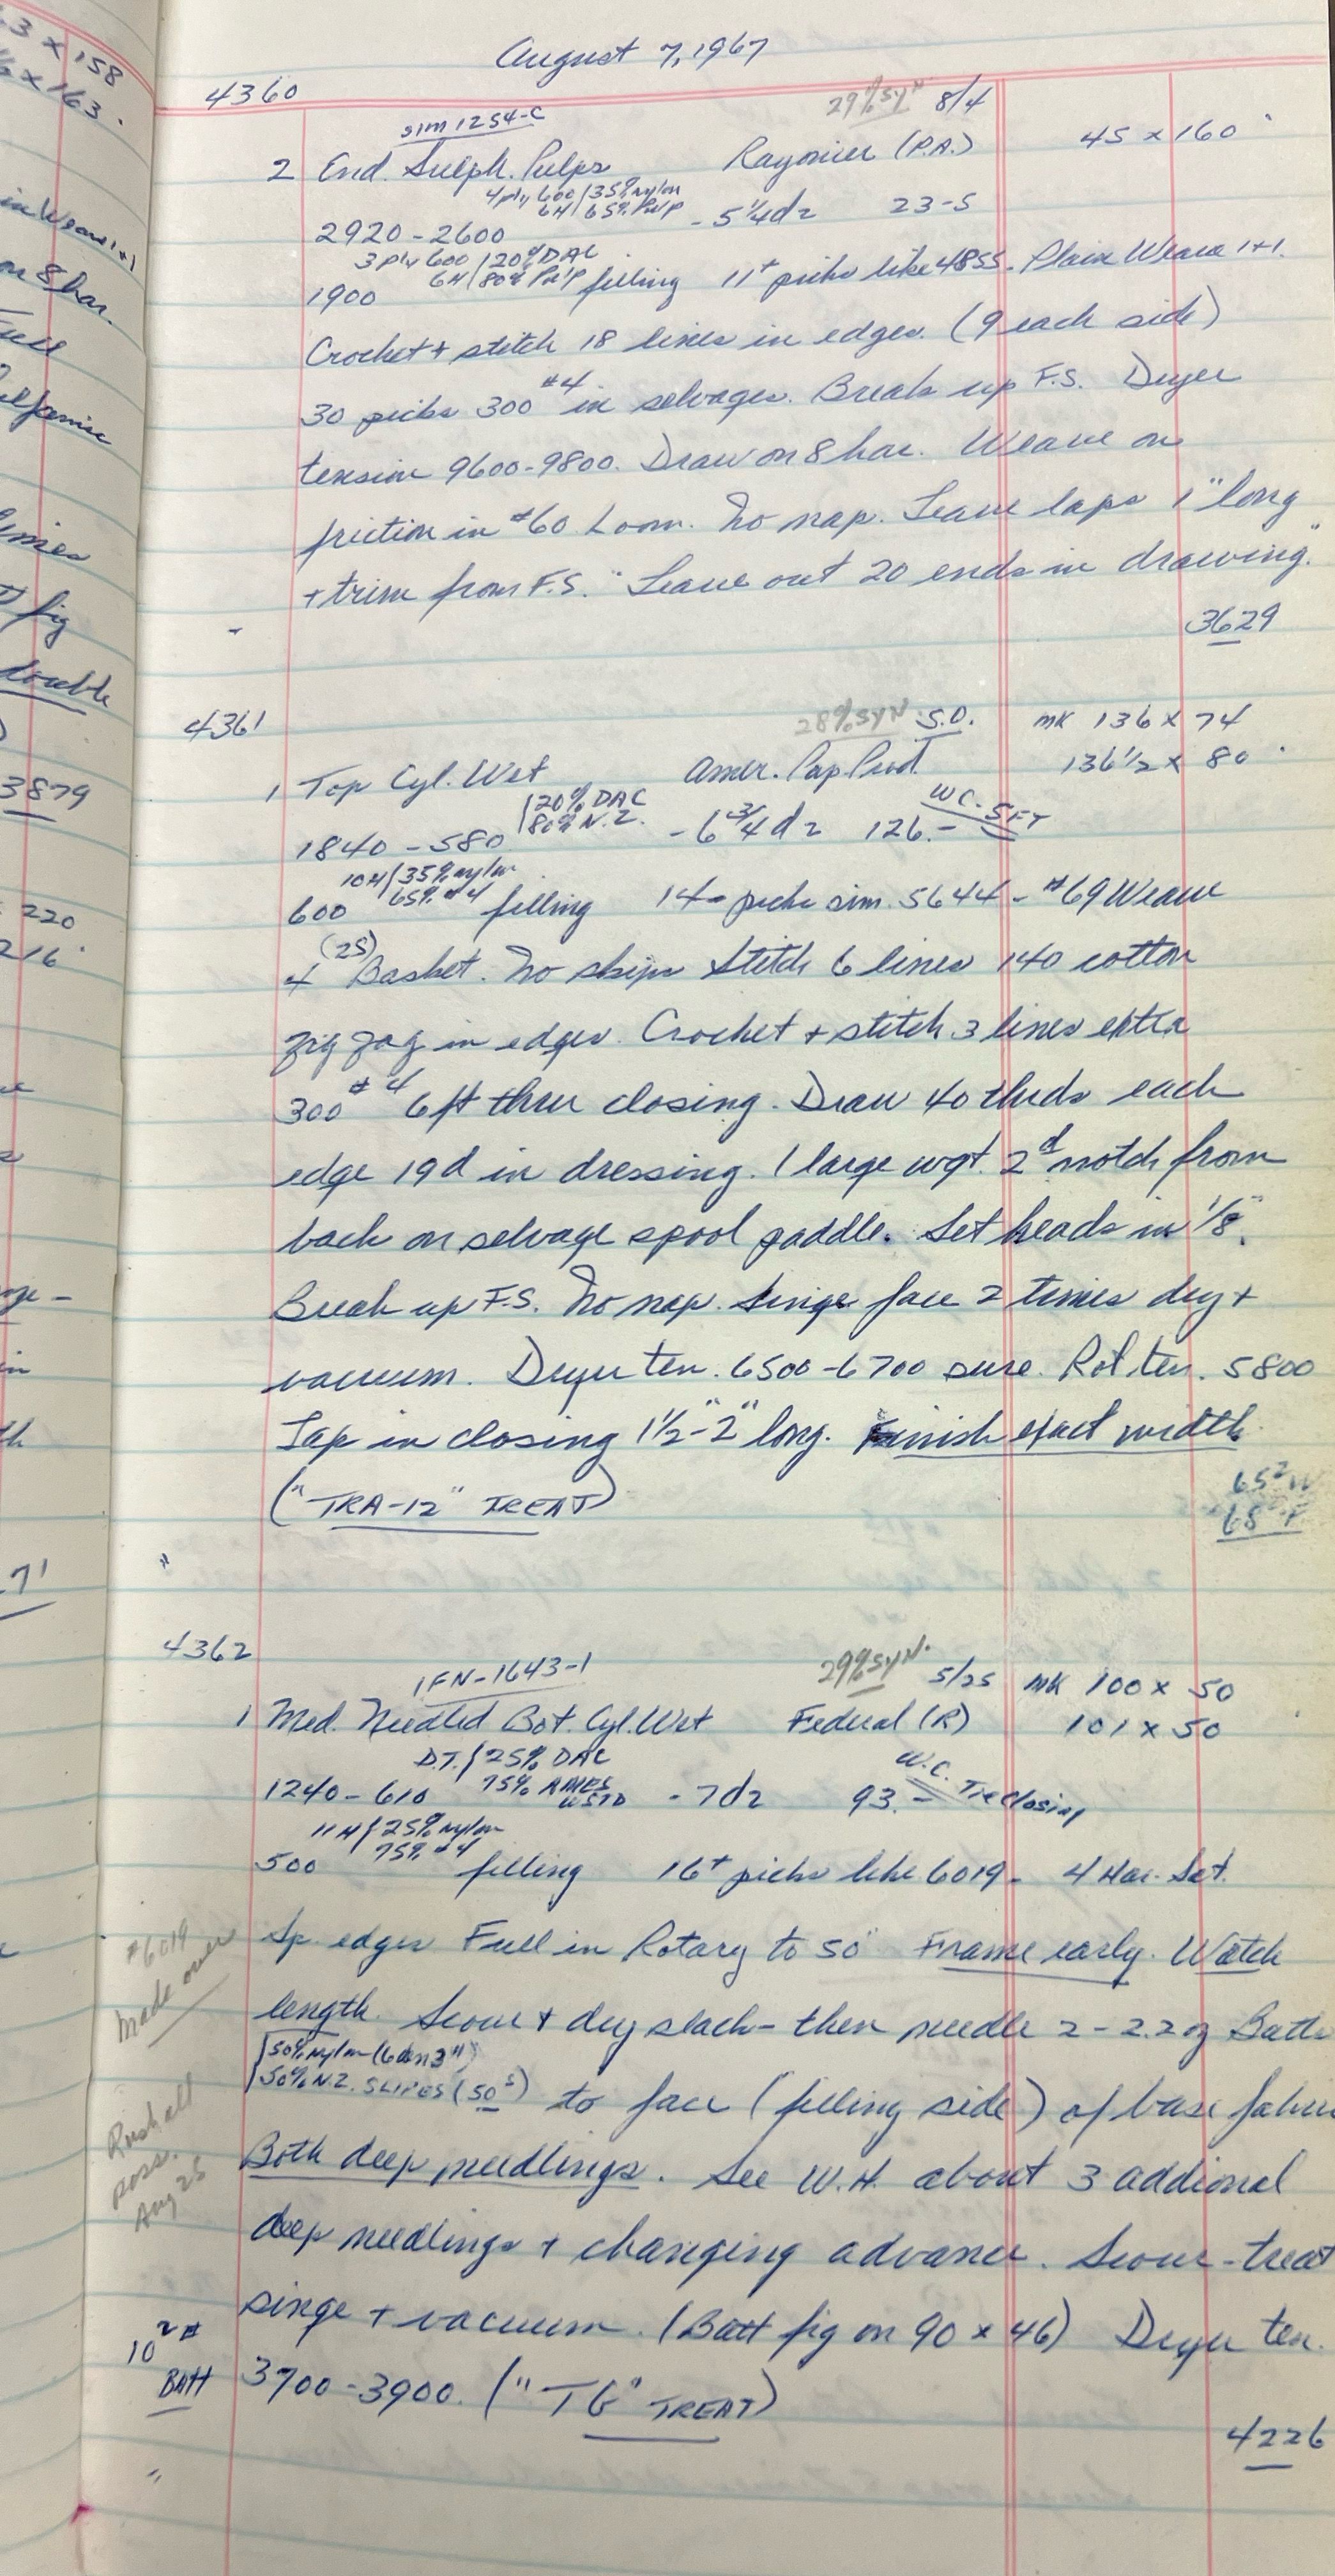 3 x 158
x 163.
in Weave 1+1
on 8 har.
Full
fig
double
3879
220
216
71
August 7, 1967
4360
29% SYN 8/4
SIM 1254-C
2 End. Sulph. Pulps Rayonier (P.A.) 45 x 160
4 ply 600 / 35% nylon
6H / 65% Pulp
2920-2600 - 5 1/4 d2 23-5
3 ply 600 / 20% DAC
6H / 80% Pulp
1900 filling 11+ picks like 4855 - Plain Weave 1+1.
Crochet + stitch 18 lines in edges. (9 each side)
30 picks 300 #4 in selvages. Break up F.S. Dryer
tension 9600-9800. Draw on 8 har. Weave on
friction in #60 Loom. No nap. Leave laps 1" long
+ trim from F.S. Leave out 20 ends in drawing.
3629
4361
28% SYN S.O. MK 136 x 74
136 1/2 x 80
1 Top Cyl. Wet Amer. Pap Prod.
20% DAC
80% N.Z.
W.C. - 5 FT
1840 - 580 - 6 3/4 d2 126.-
10H / 35% nylon
65% #4
600 filling 14- picks sim. 5644 - #69 Weave
(2S)
4 Basket. No skips Stitch 6 lines 140 cotton
zig zag in edges. Crochet + stitch 3 lines extra
300 #4 6 ft thru closing. Draw 40 thrds each
edge 19d in dressing. 1 large wgt. 2d notch from
back on selvage spool paddle. Set heads in 1/8".
Break up F.S. No nap. Singe face 2 times dry +
vacuum. Dryer ten. 6500-6700 sure. Rol ten. 5800
Lap in closing 1 1/2-2" long. Finish exact width.
("TRA-12" TREAT)
65² W
68² F
"
4362
29% SYN. 5/25 MK 100 x 50
1FN-1643-1
1 Med. Needled Bot. Cyl. Wet Federal (R) 101 x 50
D.T. / 25% DAC
75% AMES
WSTD
W.C. Tie Closing
1240 - 610 - 7 d2 93.-
11H / 25% nylon
75% #4
500 filling 16+ picks like 6019 - 4 Har. Sat.
#6019
Made over
Sp. edges Full in Rotary to 50" Frame early. Watch
length. Scour + dry slack - then needle 2 - 2.2 oz Batts
50% Nylon (6 den 3")
50% N.Z. SLIPES (50s) to face (filling side) of base fabric
Aug 25
Both deep needlings. See W.H. about 3 addional
deep needlings + changing advance. Scour-treat
singe + vacuum. (Batt fig on 90 x 46) Dryer ten.
10 2#
BATT
3700-3900. ("TG" TREAT)
4226
"